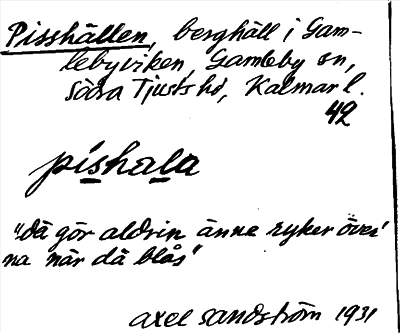 Pisshällen, berghäll i Gam-
lebyviken, Gamleby sn,
Södra Tjusts hd, Kalmar l.
42
píshala
"dä gör aldrin änna ryker över'
na när dä blås"
axel sandström 1931